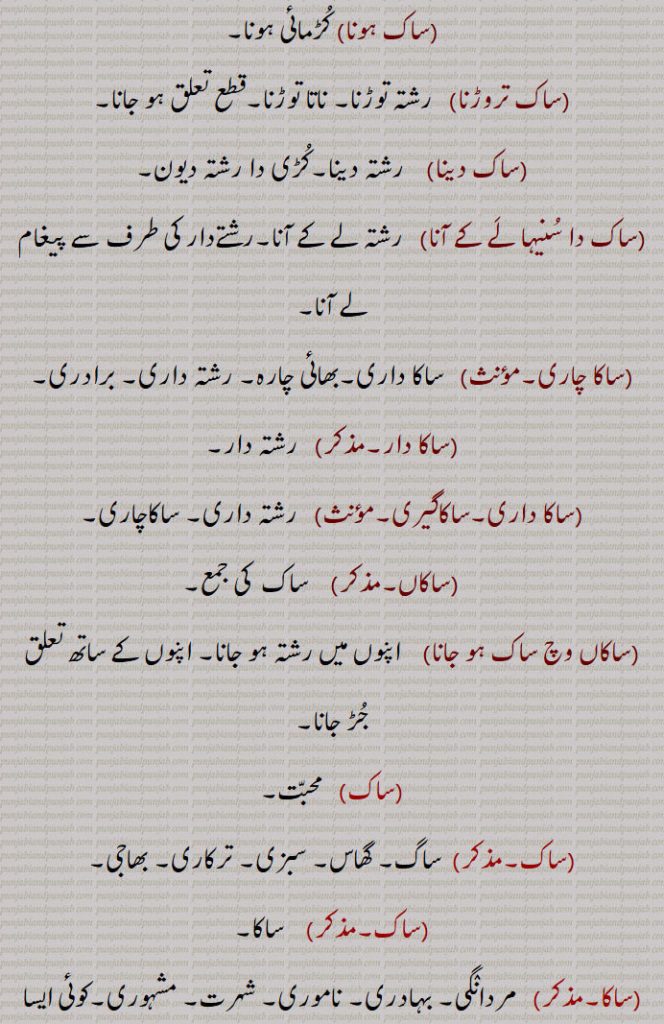 (ساک ہونا) کُڑمائی ہونا۔
(ساک تروڑنا) رشتہ توڑنا۔ ناتا توڑنا۔ قطع تعلق ہو جانا۔
(ساک دینا) رشتہ دینا۔ کُڑی دا رشتہ دیون۔
(ساک دا سُنیہا لے کے آنا) رشتہ لے کے آنا۔ رشتےدار کی طرف سے پیغام
لے آنا۔
(ساکا چاری۔ مؤنث) ساکا داری۔ بھائی چارہ۔ رشتہ داری۔ برادری۔
(ساکا دار۔ مذکر) رشتہ دار۔
(ساکا داری۔ ساکاگیری۔ مؤنث) رشتہ داری۔ ساکاچاری۔
(ساکاں۔ مذکر) ساک کی جمع۔
(ساکاں وچ ساک ہو جانا) اپنوں میں رشتہ ہو جانا۔ اپنوں کے ساتھ تعلق
جُڑ جانا۔
(ساک) محبّت۔
(ساک۔ مذکر) ساگ۔ گھاس۔ سبزی۔ ترکاری۔ بھاجی۔
(ساک۔ مذکر) ساکا۔
(ساکا۔ مذکر) مردانگی۔ بہادری۔ ناموری۔ شہرت۔ مشہوری۔ کوئی ایسا